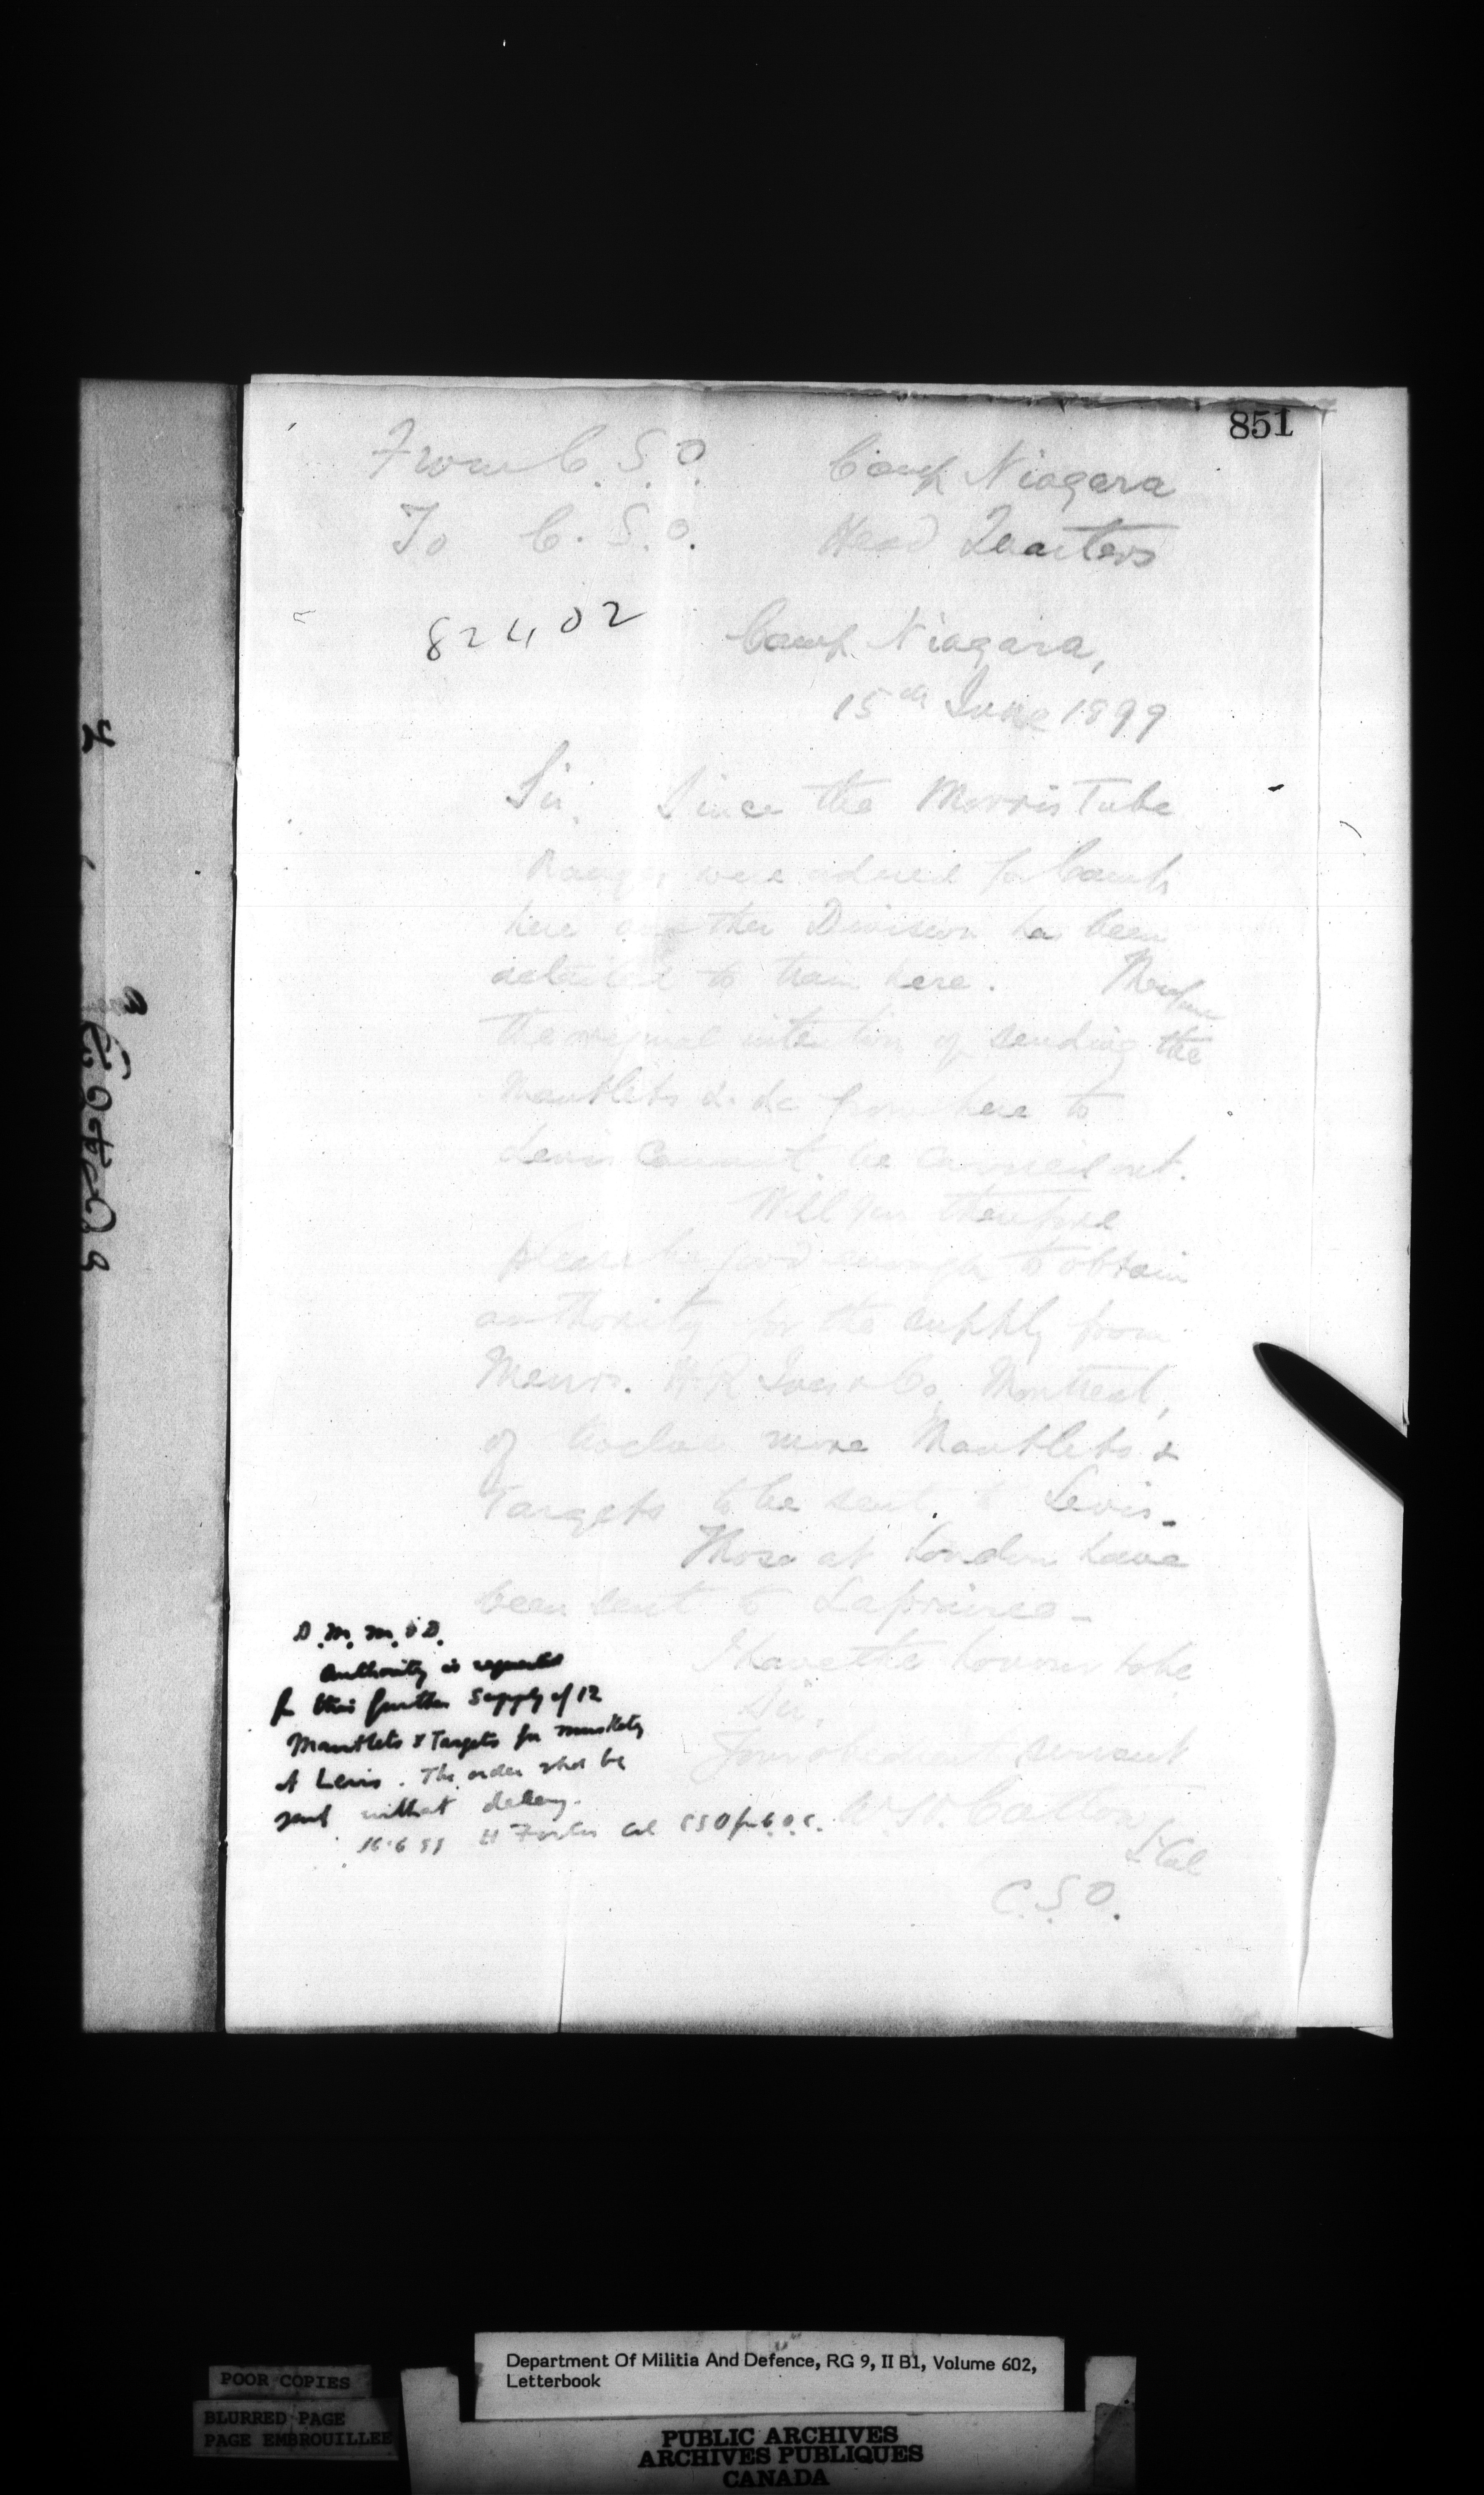 851
From C.S.O. Camp Niagara
To C.S.O. Head Quarters
82402
Camp Niagara,
15th June 1899
Sir, Since the Morris Tube
Ranges were ordered for Camps
here another Division has been
detailed to train here. Therefore
the original intention of sending the
Mantlets &c &c from here to
Levis cannot be carried out.
Will you therefore
please be good enough to obtain
authority for the supply from
Messrs. H R Ives & Co. Montreal,
of twelve more Mantlets &
Targets to be sent to Levis.
Those at London have
been sent to Laprairie –
I have the honour to be
Sir,
Your obedient servant
L Col
C.S.O.
D.M.M. & D.
Authority is requested
for this further supply of 12
Mantlets & Targets for musketry
at Levis. The order shd be
sent without delay.
16.6.99 H Foster Col CSO for G.O.C.
POOR COPIES
BLURRED PAGE
PAGE EMBROUILLEE
Department Of Militia And Defence, RG 9, II B1, Volume 602,
Letterbook
PUBLIC ARCHIVES
ARCHIVES PUBLIQUES
CANADA